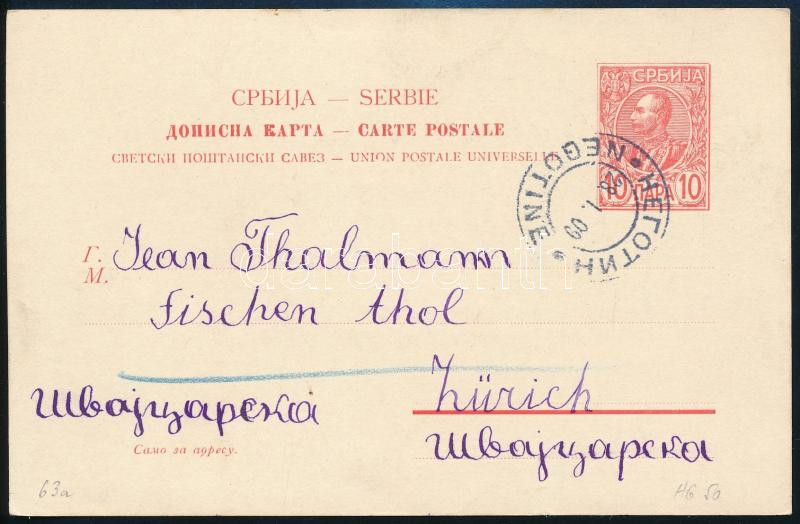 СРБИЈА
СРБИЈА — SERBIE
ДОПИСНА КАРТА — CARTE POSTALE
СВЕТСКИ ПОШТАНСКИ САВЕЗ — UNION POSTALE UNIVERSELLE
10 ПАРА 10
НЕГОТИН * NEGOTINE *
28 1 09
Г.
М.
Jean Thalmann
Fischen thol
darabanth
Zürich
Швајцарска
Швајцарска
Само за адресу.
63a
HG 50